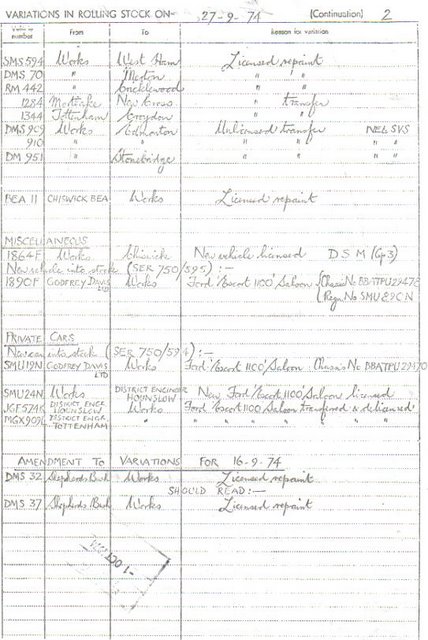 VARIATIONS IN ROLLING STOCK ON— 27-9-74 (Continuation) 2
number From To Reason for variation
SMS 594 Works West Ham Licensed repaint
DMS 70 " Merton " " "
RM 442 " Cricklewood " "
1284 Mortlake New Cross " transfer
1344 Tottenham Croydon " "
DMS 909 Works Edmonton Unlicensed transfer NEL SVS
910 " " " " " "
DM 951 " Stonebridge " " " "
BEA 11 CHISWICK BEA Works Licensed repaint
MISCELLANEOUS
1864F Works Chiswick New vehicle licensed D S M (Gp3)
New vehicle into stock (SER 750/595) :—
1890F GODFREY DAVIS LTD Works Ford 'Escort 1100' Saloon (Chassis No BBATPU29478
(Regn. No SMU 89CN
PRIVATE CARS
New car into stock (SER 750/594) :—
SMU19N GODFREY DAVIS LTD Works Ford 'Escort 1100' Saloon. Chassis No BBATPU29470
SMU24N Works DISTRICT ENGINEER HOUNSLOW New Ford 'Escort 1100' Saloon licensed
JGF574K DISTRICT ENGR. HOUNSLOW Works Ford 'Escort 1100' Saloon transferred & delicensed
DISTRICT ENGR. TOTTENHAM " " " " " " "
AMENDMENT TO VARIATIONS FOR 16-9-74
DMS 32 Shepherds Bush Works Licensed repaint
SHOULD READ :—
DMS 37 Shepherds Bush Works Licensed repaint
-1 OCT 1974